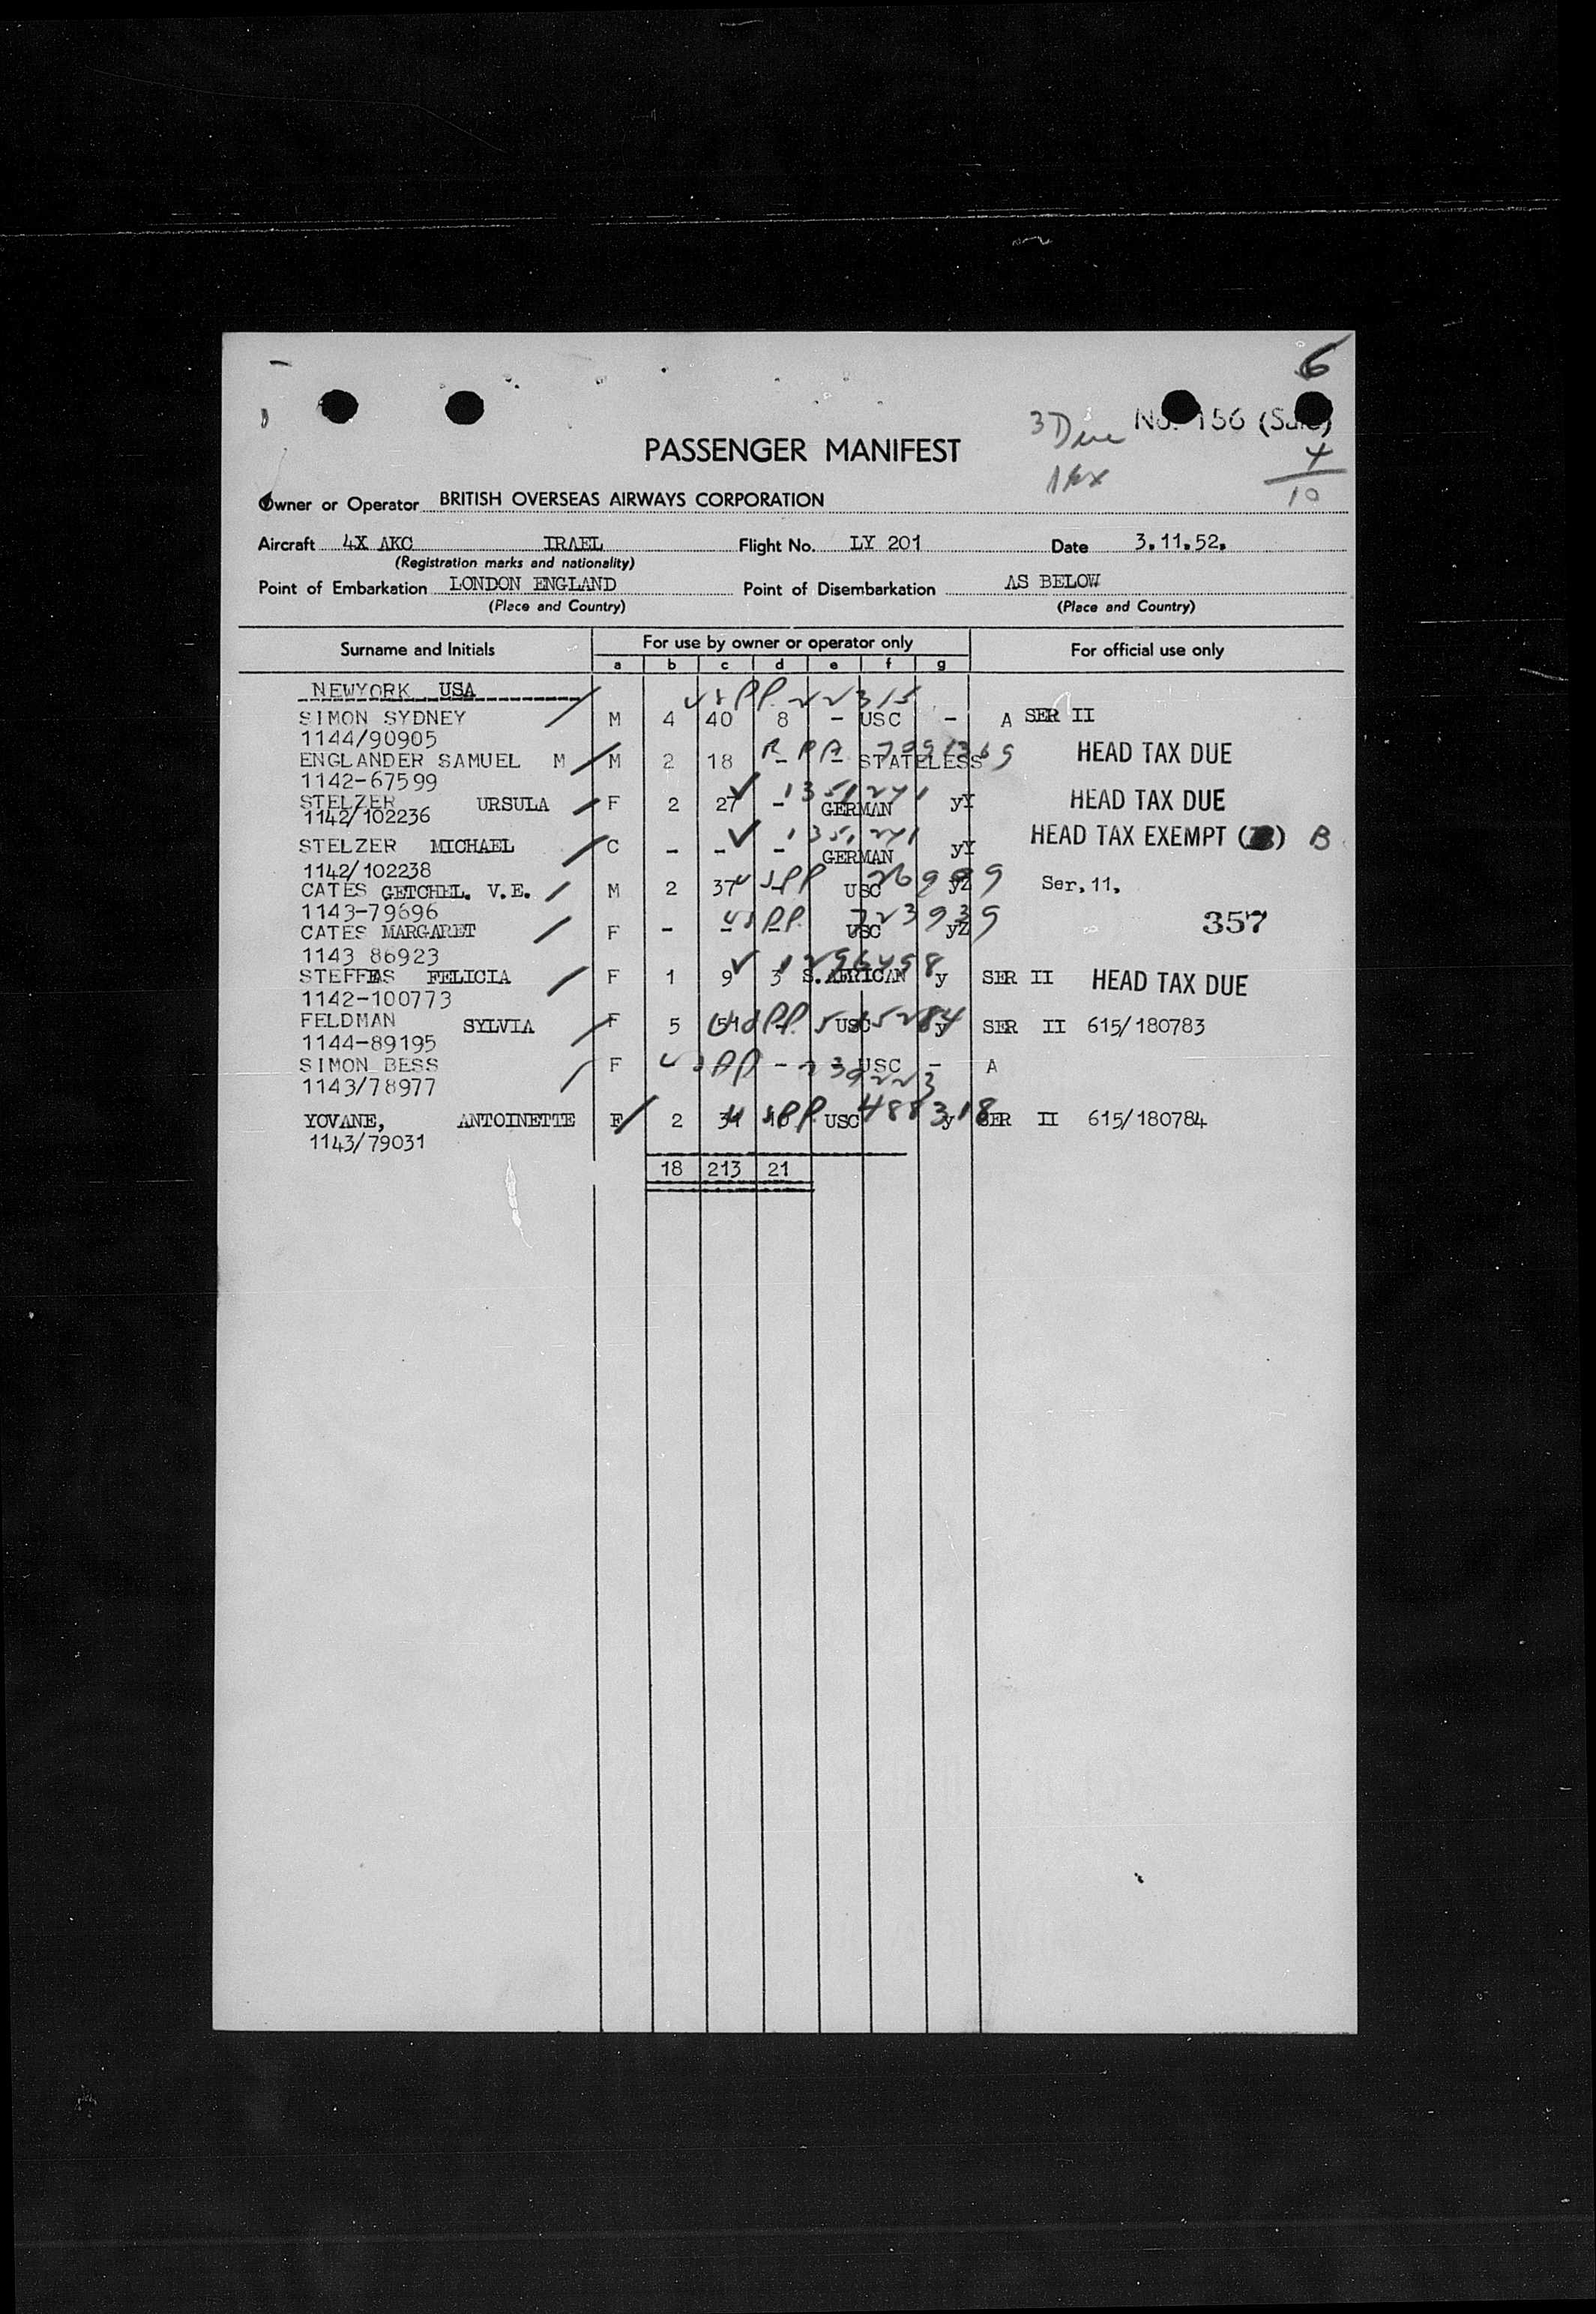 6
3 Due No. 156 (Sub)
PASSENGER MANIFEST 4
10
Owner or Operator BRITISH OVERSEAS AIRWAYS CORPORATION
Aircraft 4X AKC IRAEL Flight No. LY 201 Date 3.11.52.
(Registration marks and nationality)
Point of Embarkation LONDON ENGLAND Point of Disembarkation AS BELOW
(Place and Country) (Place and Country)
Surname and Initials For use by owner or operator only For official use only
a b c d e f g
NEWYORK USA US PP. 22315
SIMON SYDNEY M 4 40 8 - USC - A SER II
1144/90905
ENGLANDER SAMUEL M M 2 18 - - STATELESS HEAD TAX DUE
1142-67599
STELZER URSULA F 2 27 - 1351241 GERMAN yY HEAD TAX DUE
1142/102236
STELZER MICHAEL C - - - 1351241 GERMAN yY HEAD TAX EXEMPT ( ) B
1142/102238
CATES GETCHEL. V.E. M 2 37 USPP USC yZ Ser.11.
1143-79696
CATES MARGARET F - - - US PP. 723939 USC yZ 357
1143 86923
STEFFAS FELICIA F 1 9 3 1296498 S.AFRICAN y SER II HEAD TAX DUE
1142-100773
FELDMAN SYLVIA F 5 51 US PP. USC y SER II 615/180783
1144-89195
SIMON BESS F US PP - USC - A
1143/78977 239223
YOVANE, ANTOINETTE F 2 31 10 US PP. USC 488318 y SER II 615/180784
1143/79031
18 213 21